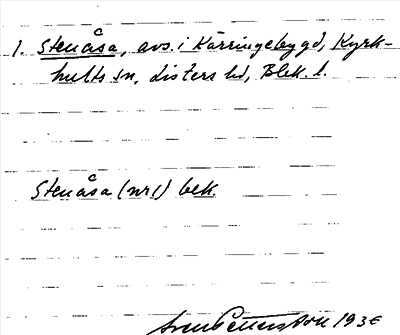 1. Stenåsa, avs. i Kärringebygd, Kyrk-
hults sn, Listers hd, Blek. l.
Stenåsa (nr 1) bek.
Sven Pettersson 1936